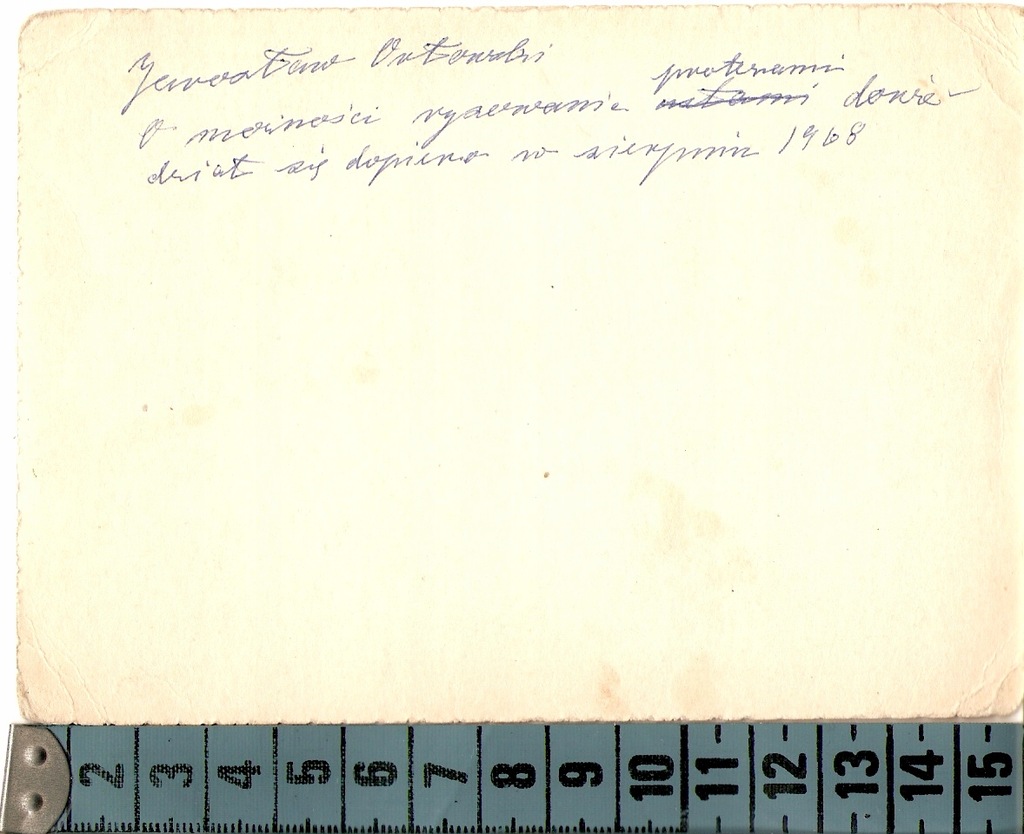 Jarosław Orłowski
protezami
O możności rysowania ustami dowie-
dział się dopiero w sierpniu 1968
2 3 4 5 6 7 8 9 10 11 12 13 14 15